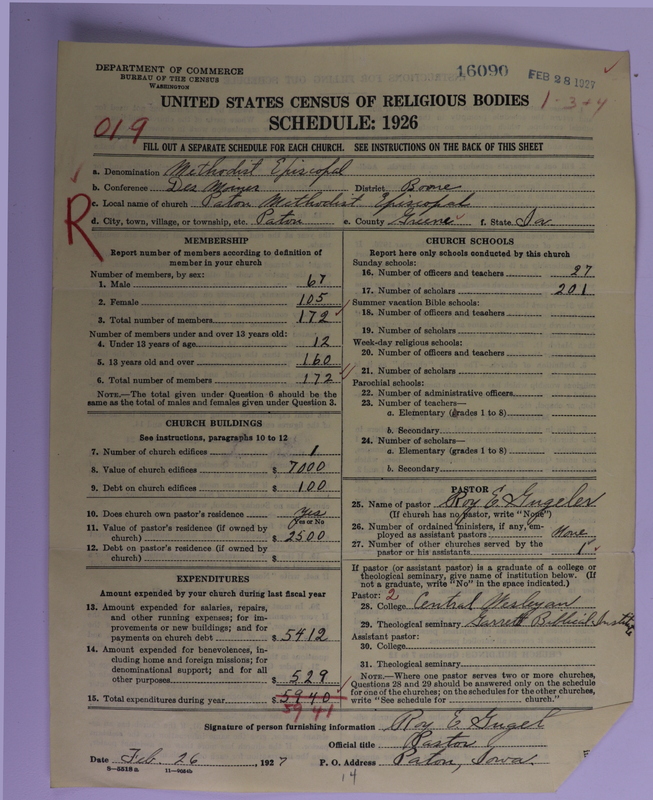 DEPARTMENT OF COMMERCE
BUREAU OF THE CENSUS
WASHINGTON
16090
FEB 28 1927
1-3+4
UNITED STATES CENSUS OF RELIGIOUS BODIES
SCHEDULE: 1926
019
FILL OUT A SEPARATE SCHEDULE FOR EACH CHURCH. SEE INSTRUCTIONS ON THE BACK OF THIS SHEET
a. Denomination Methodist Episcopal
b. Conference Des Moines District Boone
c. Local name of church Paton Methodist Episcopal
d. City, town, village, or township, etc. Paton e. County Greene f. State Ia
R
MEMBERSHIP
Report number of members according to definition of
member in your church
Number of members, by sex:
1. Male 67
2. Female 105
3. Total number of members 172
Number of members under and over 13 years old:
4. Under 13 years of age 12
5. 13 years old and over 160
6. Total number of members 172
NOTE.—The total given under Question 6 should be the
same as the total of males and females given under Question 3.
CHURCH BUILDINGS
See instructions, paragraphs 10 to 12
7. Number of church edifices 1
8. Value of church edifices $ 7000
9. Debt on church edifices $ 100
10. Does church own pastor's residence Yes
Yes or No
11. Value of pastor's residence (if owned by
church) $ 2500
12. Debt on pastor's residence (if owned by
church) $
EXPENDITURES
Amount expended by your church during last fiscal year
13. Amount expended for salaries, repairs,
and other running expenses; for im-
provements or new buildings; and for
payments on church debt $ 5412
14. Amount expended for benevolences, in-
cluding home and foreign missions; for
denominational support; and for all
other purposes $ 529
15. Total expenditures during year $ 5940
5941
CHURCH SCHOOLS
Report here only schools conducted by this church
Sunday schools:
16. Number of officers and teachers 27
17. Number of scholars 201
Summer vacation Bible schools:
18. Number of officers and teachers
19. Number of scholars
Week-day religious schools:
20. Number of officers and teachers
21. Number of scholars
Parochial schools:
22. Number of administrative officers
23. Number of teachers—
a. Elementary (grades 1 to 8)
b. Secondary
24. Number of scholars—
a. Elementary (grades 1 to 8)
b. Secondary
PASTOR
25. Name of pastor Roy E. Gugeler
(If church has no pastor, write "None")
26. Number of ordained ministers, if any, em-
ployed as assistant pastors None
27. Number of other churches served by the
pastor or his assistants 1
If pastor (or assistant pastor) is a graduate of a college or
theological seminary, give name of institution below. (If
not a graduate, write "No" in the space indicated.)
Pastor: 2
28. College Central Wesleyan
29. Theological seminary Garrett Biblical Institute
Assistant pastor:
30. College
31. Theological seminary
NOTE.—Where one pastor serves two or more churches,
Questions 28 and 29 should be answered only on the schedule
for one of the churches; on the schedules for the other churches,
write "See schedule for church."
Signature of person furnishing information Roy E. Gugel
Official title Pastor
Date Feb. 26, 1927 P. O. Address Paton, Iowa.
14